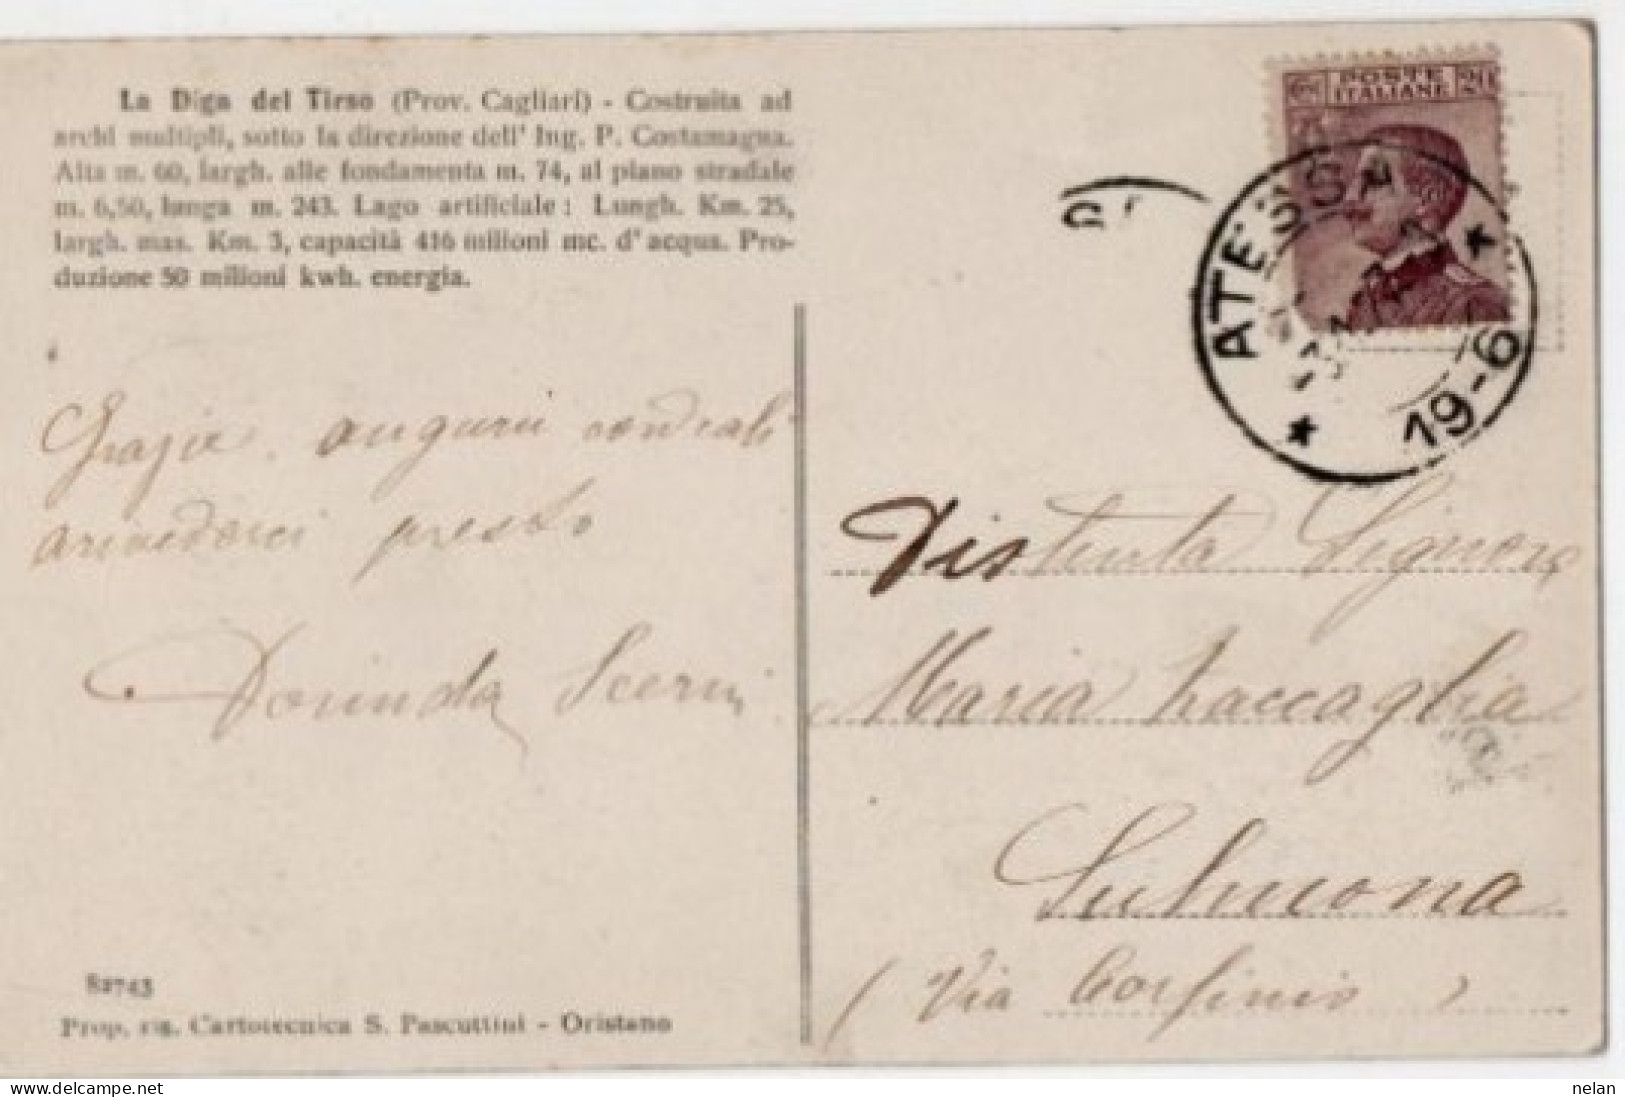 La Diga del Tirso (Prov. Cagliari) - Costruita ad
archi multipli, sotto la direzione dell' Ing. P. Costamagna.
Alta m. 60, largh. alle fondamenta m. 74, al piano stradale
m. 6,50, lunga m. 243. Lago artificiale : Lungh. Km. 25,
largh. mas. Km. 3, capacità 416 milioni mc. d' acqua. Pro-
duzione 50 milioni kwh. energia.
POSTE
ITALIANE
ATESSA
19-6
Grazie. auguri cordiali
arivederci presto
Dorinda Scerni
Distinta Signora
Maria Zaccaglia
Sulmona
(Via Corfinio)
82743
Prop. ris. Cartotecnica S. Pascuttini - Oristano
nelan